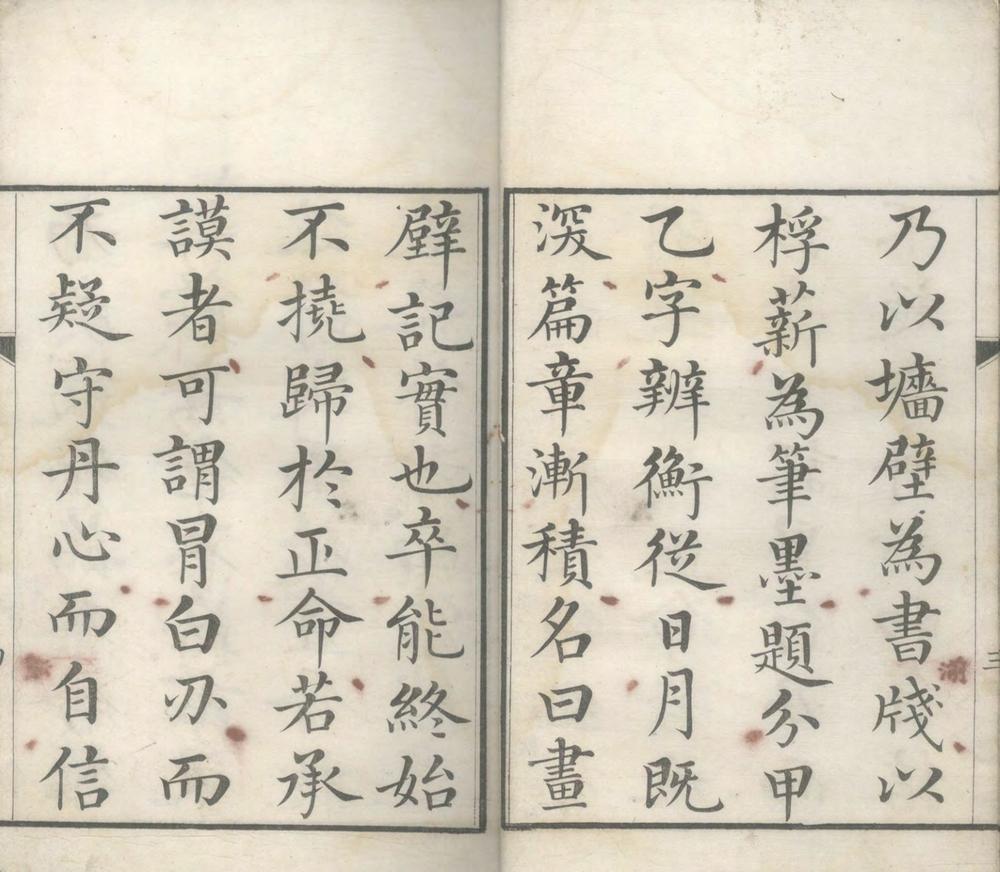 乃以墻壁為書牋以
桴薪為筆墨題分甲
乙字辨衡從日月既
深篇章漸積名曰畫
壁記實也卒能終始
不撓歸於正命若承
謨者可謂冐白刅而
不疑守丹心而自信
三